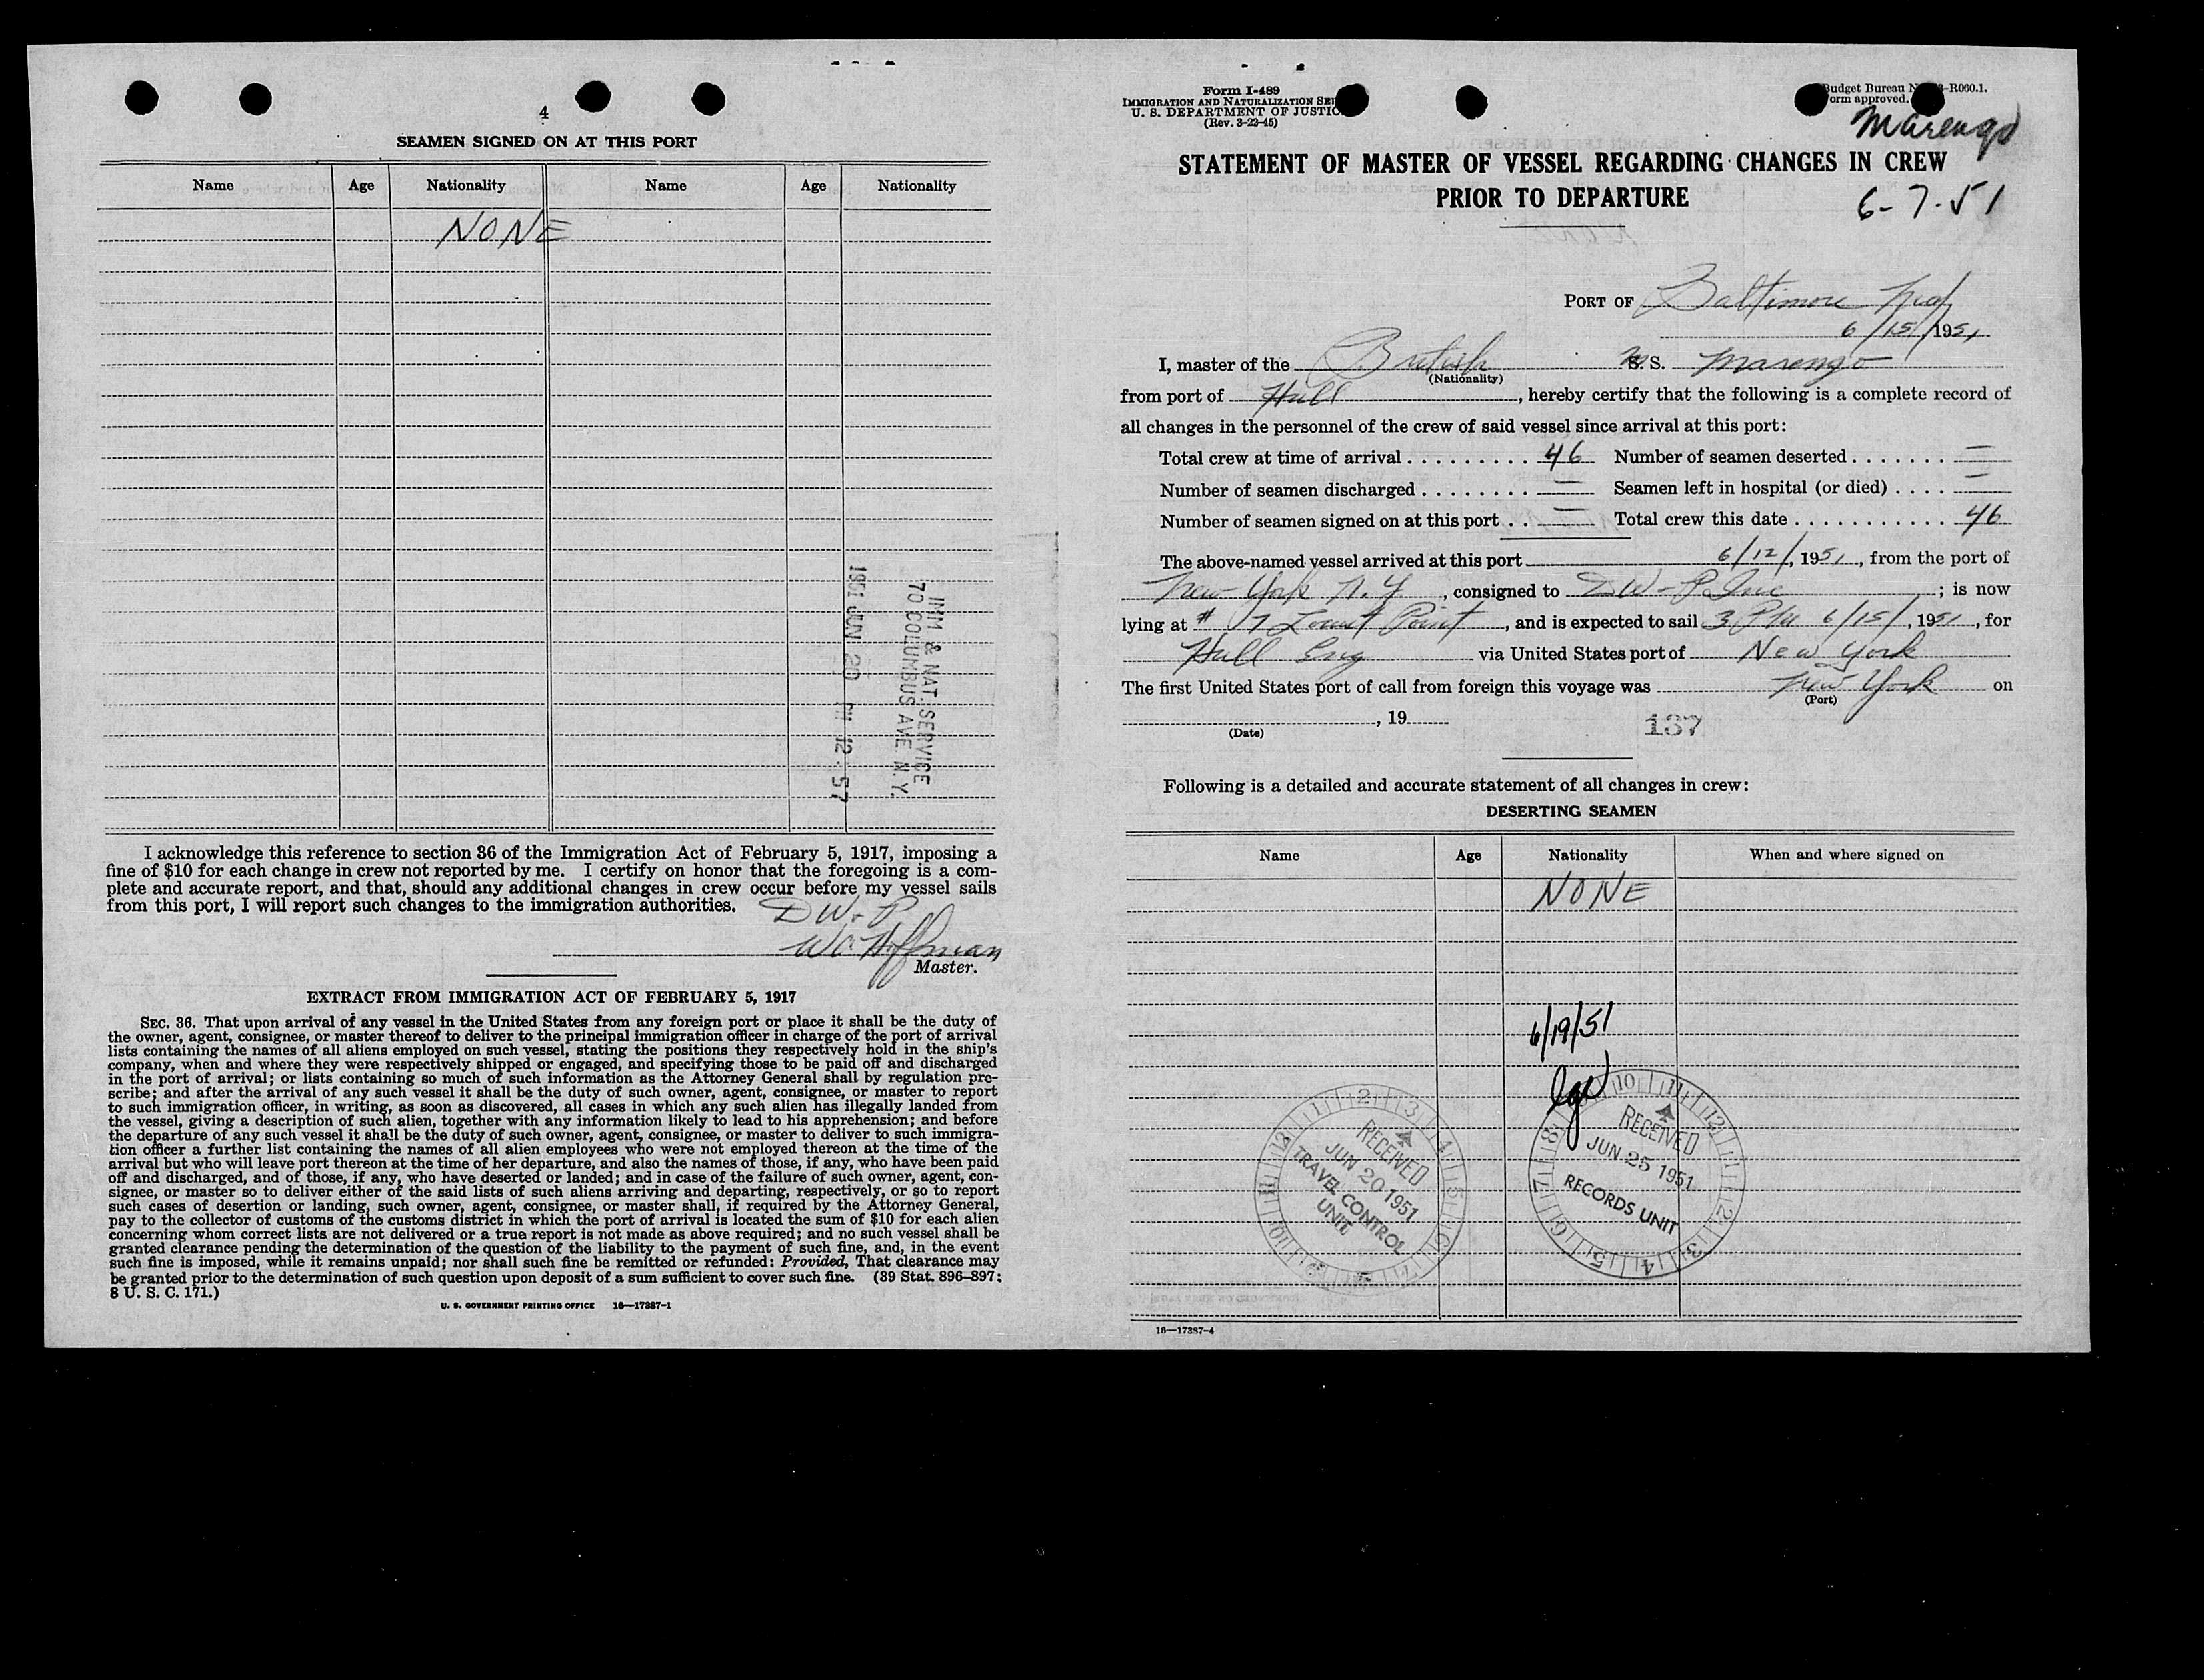 4
SEAMEN SIGNED ON AT THIS PORT
Name Age Nationality Name Age Nationality
NONE
IMM & NAT. SERVICE
70 COLUMBUS AVE. N.Y.
1951 JUN 20 PM 12 57
I acknowledge this reference to section 36 of the Immigration Act of February 5, 1917, imposing a
fine of $10 for each change in crew not reported by me. I certify on honor that the foregoing is a com-
plete and accurate report, and that, should any additional changes in crew occur before my vessel sails
from this port, I will report such changes to the immigration authorities.
DW-P
WC Hoffman
Master.
EXTRACT FROM IMMIGRATION ACT OF FEBRUARY 5, 1917
SEC. 36. That upon arrival of any vessel in the United States from any foreign port or place it shall be the duty of
the owner, agent, consignee, or master thereof to deliver to the principal immigration officer in charge of the port of arrival
lists containing the names of all aliens employed on such vessel, stating the positions they respectively hold in the ship's
company, when and where they were respectively shipped or engaged, and specifying those to be paid off and discharged
in the port of arrival; or lists containing so much of such information as the Attorney General shall by regulation pre-
scribe; and after the arrival of any such vessel it shall be the duty of such owner, agent, consignee, or master to report
to such immigration officer, in writing, as soon as discovered, all cases in which any such alien has illegally landed from
the vessel, giving a description of such alien, together with any information likely to lead to his apprehension; and before
the departure of any such vessel it shall be the duty of such owner, agent, consignee, or master to deliver to such immigra-
tion officer a further list containing the names of all alien employees who were not employed thereon at the time of the
arrival but who will leave port thereon at the time of her departure, and also the names of those, if any, who have been paid
off and discharged, and of those, if any, who have deserted or landed; and in case of the failure of such owner, agent, con-
signee, or master so to deliver either of the said lists of such aliens arriving and departing, respectively, or so to report
such cases of desertion or landing, such owner, agent, consignee, or master shall, if required by the Attorney General,
pay to the collector of customs of the customs district in which the port of arrival is located the sum of $10 for each alien
concerning whom correct lists are not delivered or a true report is not made as above required; and no such vessel shall be
granted clearance pending the determination of the question of the liability to the payment of such fine, and, in the event
such fine is imposed, while it remains unpaid; nor shall such fine be remitted or refunded: Provided, That clearance may
be granted prior to the determination of such question upon deposit of a sum sufficient to cover such fine. (39 Stat. 896–897;
8 U. S. C. 171.)
U. S. GOVERNMENT PRINTING OFFICE 16—17387-1
Form I-489
IMMIGRATION AND NATURALIZATION SE
U. S. DEPARTMENT OF JUSTIC
(Rev. 3-22-45)
Budget Bureau N -R060.1.
orm approved.
Marengo
STATEMENT OF MASTER OF VESSEL REGARDING CHANGES IN CREW
PRIOR TO DEPARTURE
6-7-51
PORT OF Baltimore Md
6/15/, 1951
I, master of the British M S. S. Marengo
(Nationality)
from port of Hull, hereby certify that the following is a complete record of
all changes in the personnel of the crew of said vessel since arrival at this port:
Total crew at time of arrival . . . . . . . . . 46 Number of seamen deserted . . . . . . . —
Number of seamen discharged . . . . . . . . — Seamen left in hospital (or died) . . . . —
Number of seamen signed on at this port . . — Total crew this date . . . . . . . . . . . 46
The above-named vessel arrived at this port 6/12/, 1951, from the port of
New York N.Y, consigned to DW-P Inc; is now
lying at # 7 Locust Point, and is expected to sail 3 PM 6/15/, 1951, for
Hull Eng via United States port of New York
The first United States port of call from foreign this voyage was New York on
(Port)
, 19
(Date)
137
Following is a detailed and accurate statement of all changes in crew:
DESERTING SEAMEN
Name Age Nationality When and where signed on
NONE
6/19/51
RECEIVED
JUN 20 1951
TRAVEL CONTROL
UNIT
RECEIVED
JUN 25 1951
RECORDS UNIT
16—17387-4